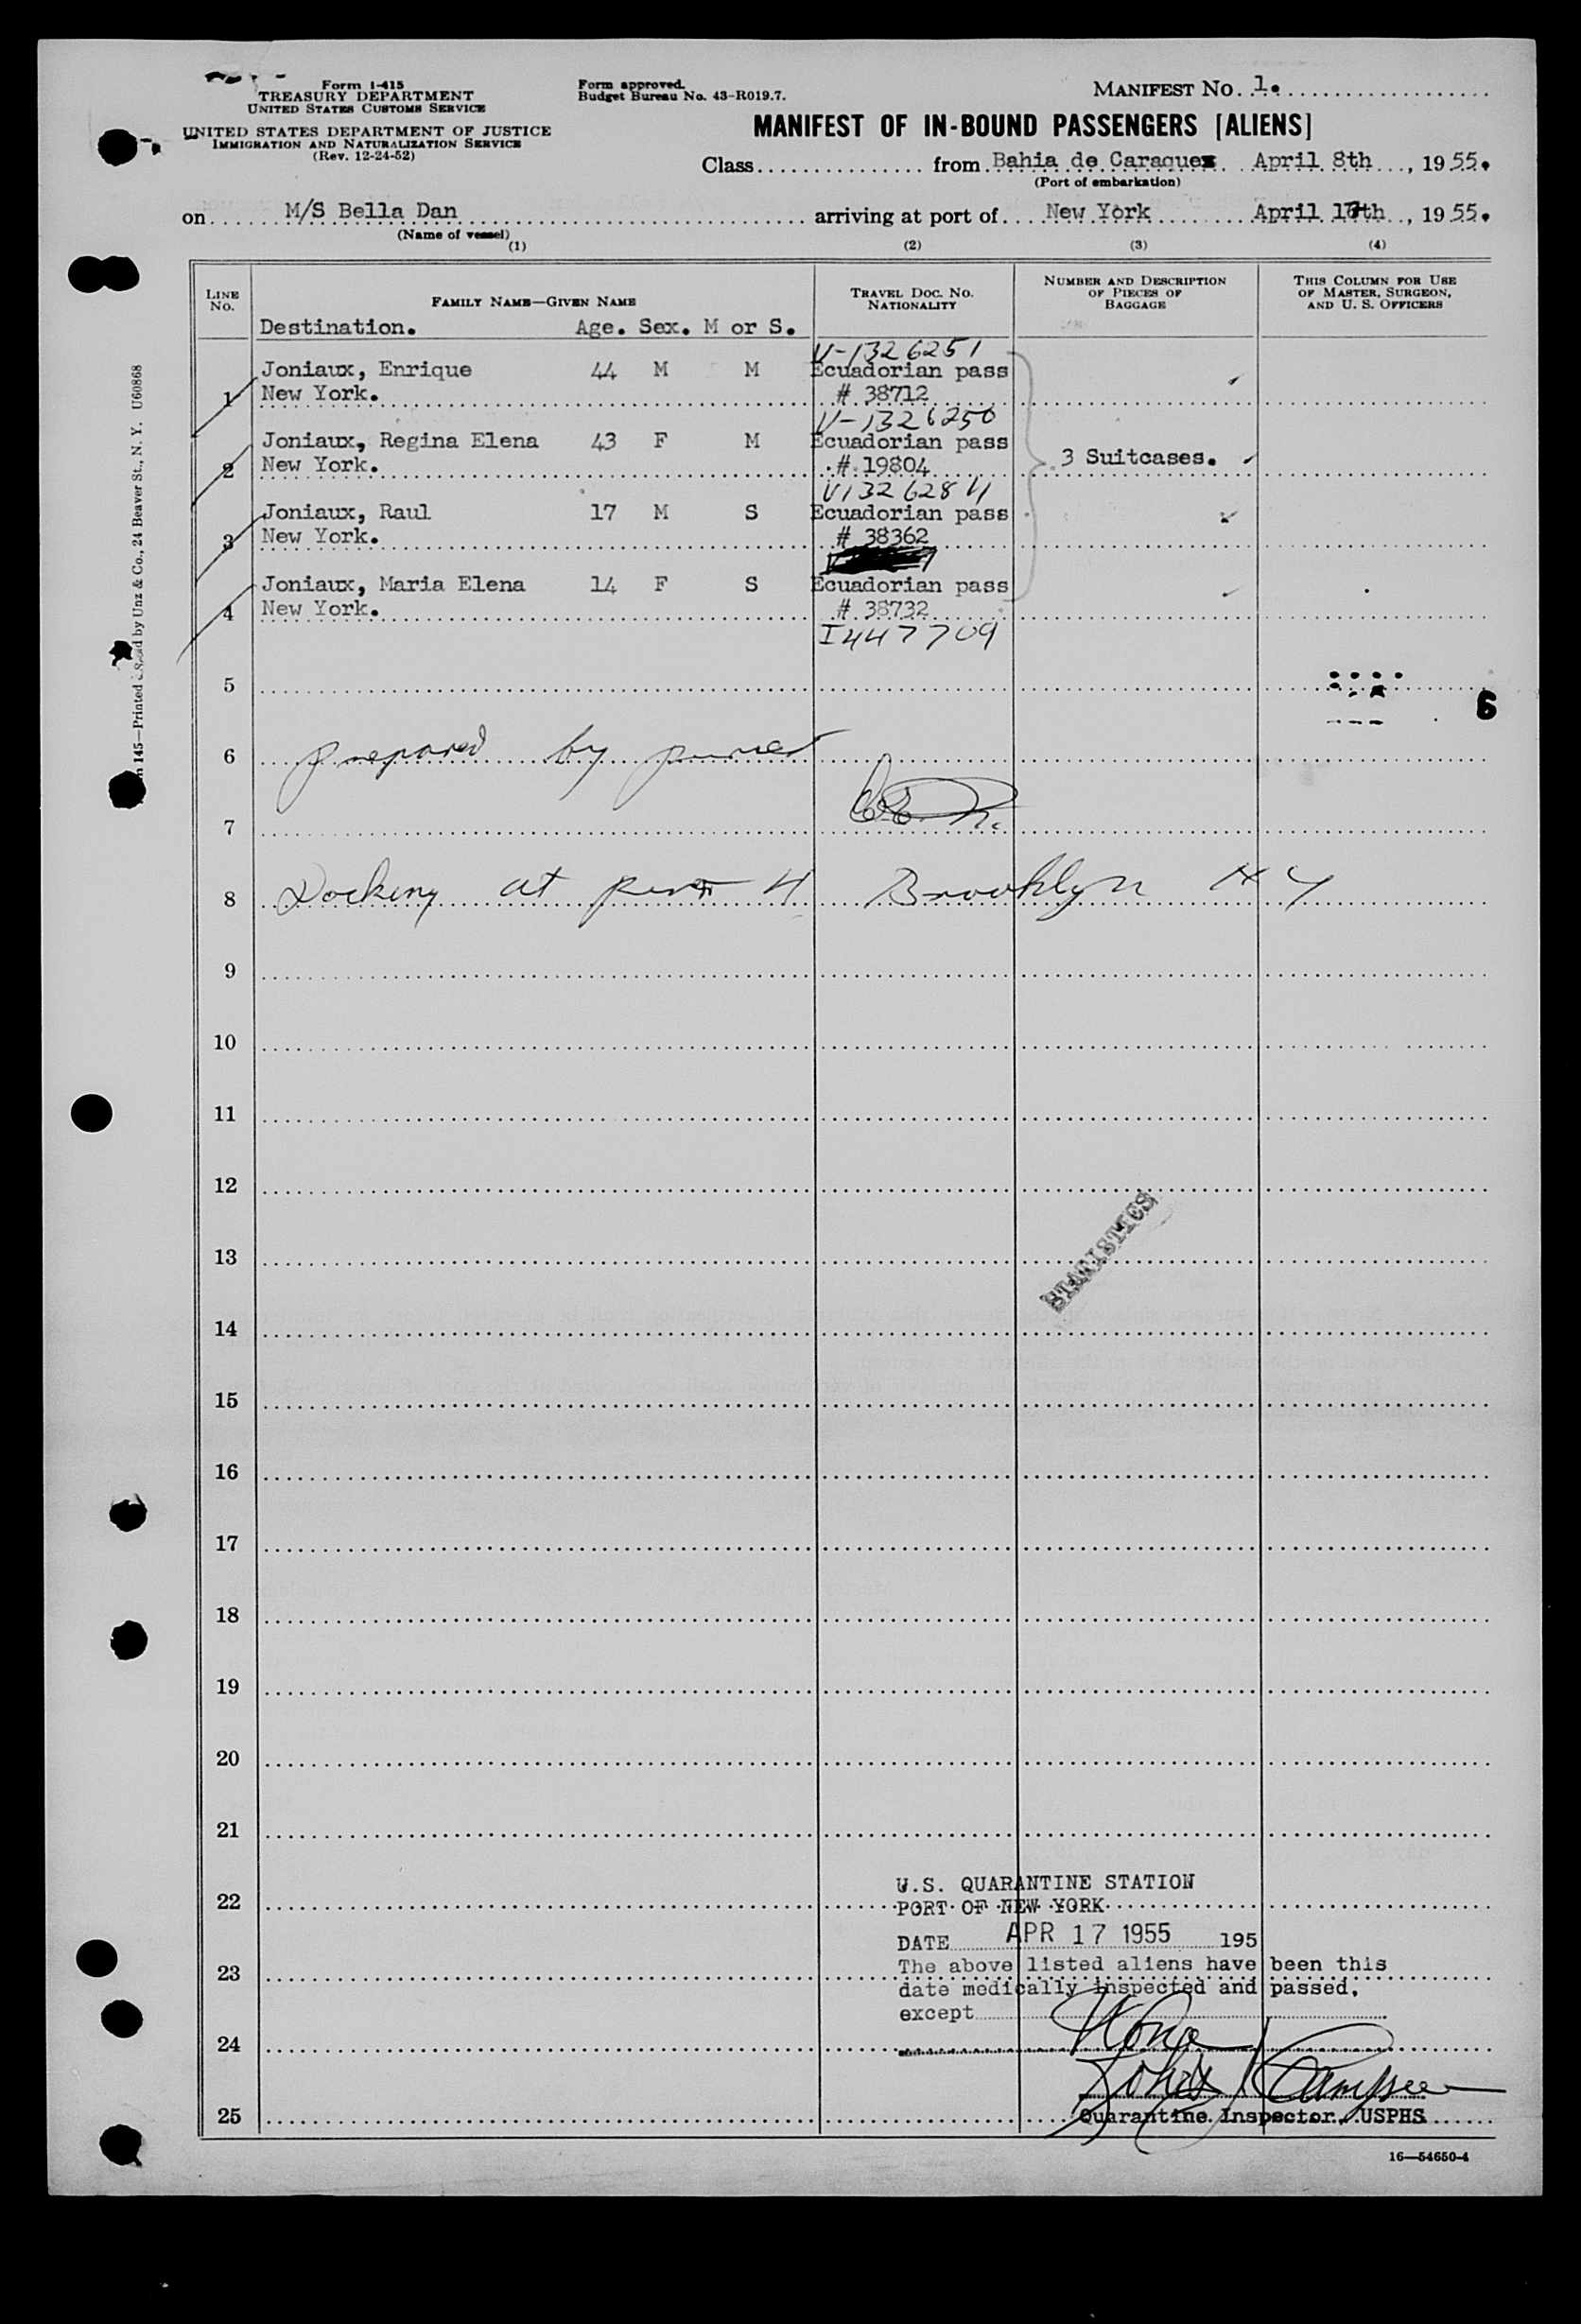 Form I-415
TREASURY DEPARTMENT
UNITED STATES CUSTOMS SERVICE
UNITED STATES DEPARTMENT OF JUSTICE
IMMIGRATION AND NATURALIZATION SERVICE
(Rev. 12-24-52)
Form approved.
Budget Bureau No. 43-R019.7.
MANIFEST NO. 1.
MANIFEST OF IN-BOUND PASSENGERS [ALIENS]
Class from Bahia de Caraquez April 8th, 1955.
(Port of embarkation)
on M/S Bella Dan arriving at port of New York April 17th, 1955.
(Name of vessel)
(1) (2) (3) (4)
LINE NO. FAMILY NAME—GIVEN NAME TRAVEL DOC. NO. NATIONALITY NUMBER AND DESCRIPTION OF PIECES OF BAGGAGE THIS COLUMN FOR USE OF MASTER, SURGEON, AND U. S. OFFICERS
Destination. Age. Sex. M or S.
V-1326251
Joniaux, Enrique 44 M M Ecuadorian pass
1 New York. # 38712
V-1326250
Joniaux, Regina Elena 43 F M Ecuadorian pass
2 New York. # 19804 3 Suitcases.
V1326284
Joniaux, Raul 17 M S Ecuadorian pass
3 New York. # 38362
Joniaux, Maria Elena 14 F S Ecuadorian pass
4 New York. # 38732
I447709
5
6
6 prepared by purser
7
8 Docking at pier 4 Brooklyn NY
9
10
11
12
13
STATISTICS
14
15
16
17
18
19
20
21
U.S. QUARANTINE STATION
22 PORT OF NEW YORK
DATE APR 17 1955 195
The above listed aliens have been this
23
date medically inspected and passed,
except None
24
25 Quarantine Inspector, USPHS
16—54650-4
145—Printed by Unz & Co., 24 Beaver St., N. Y. U60868